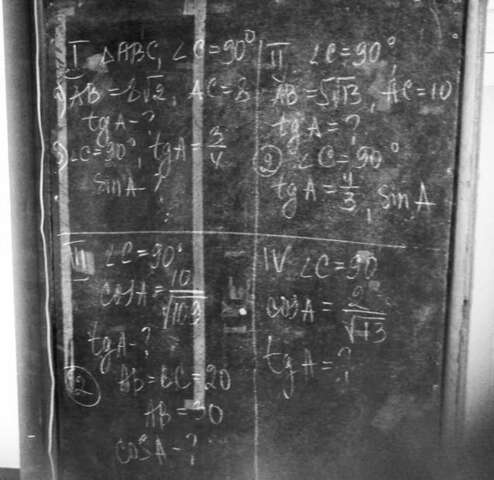 I △ABC, ∠C=90°
1) AB=8√2, AC=8
tgA-?
2) ∠C=90°, tgA=3/4
sinA ?
II ∠C=90°,
AB=5√13, AC=10
tgA=?
2) ∠C=90°
tgA=4/3, sinA
III ∠C=90°
cosA=10/√103
tgA-?
2) AB=BC=20
AB=30
cosA-?
IV ∠C=90
cosA=2/√13
tgA=?